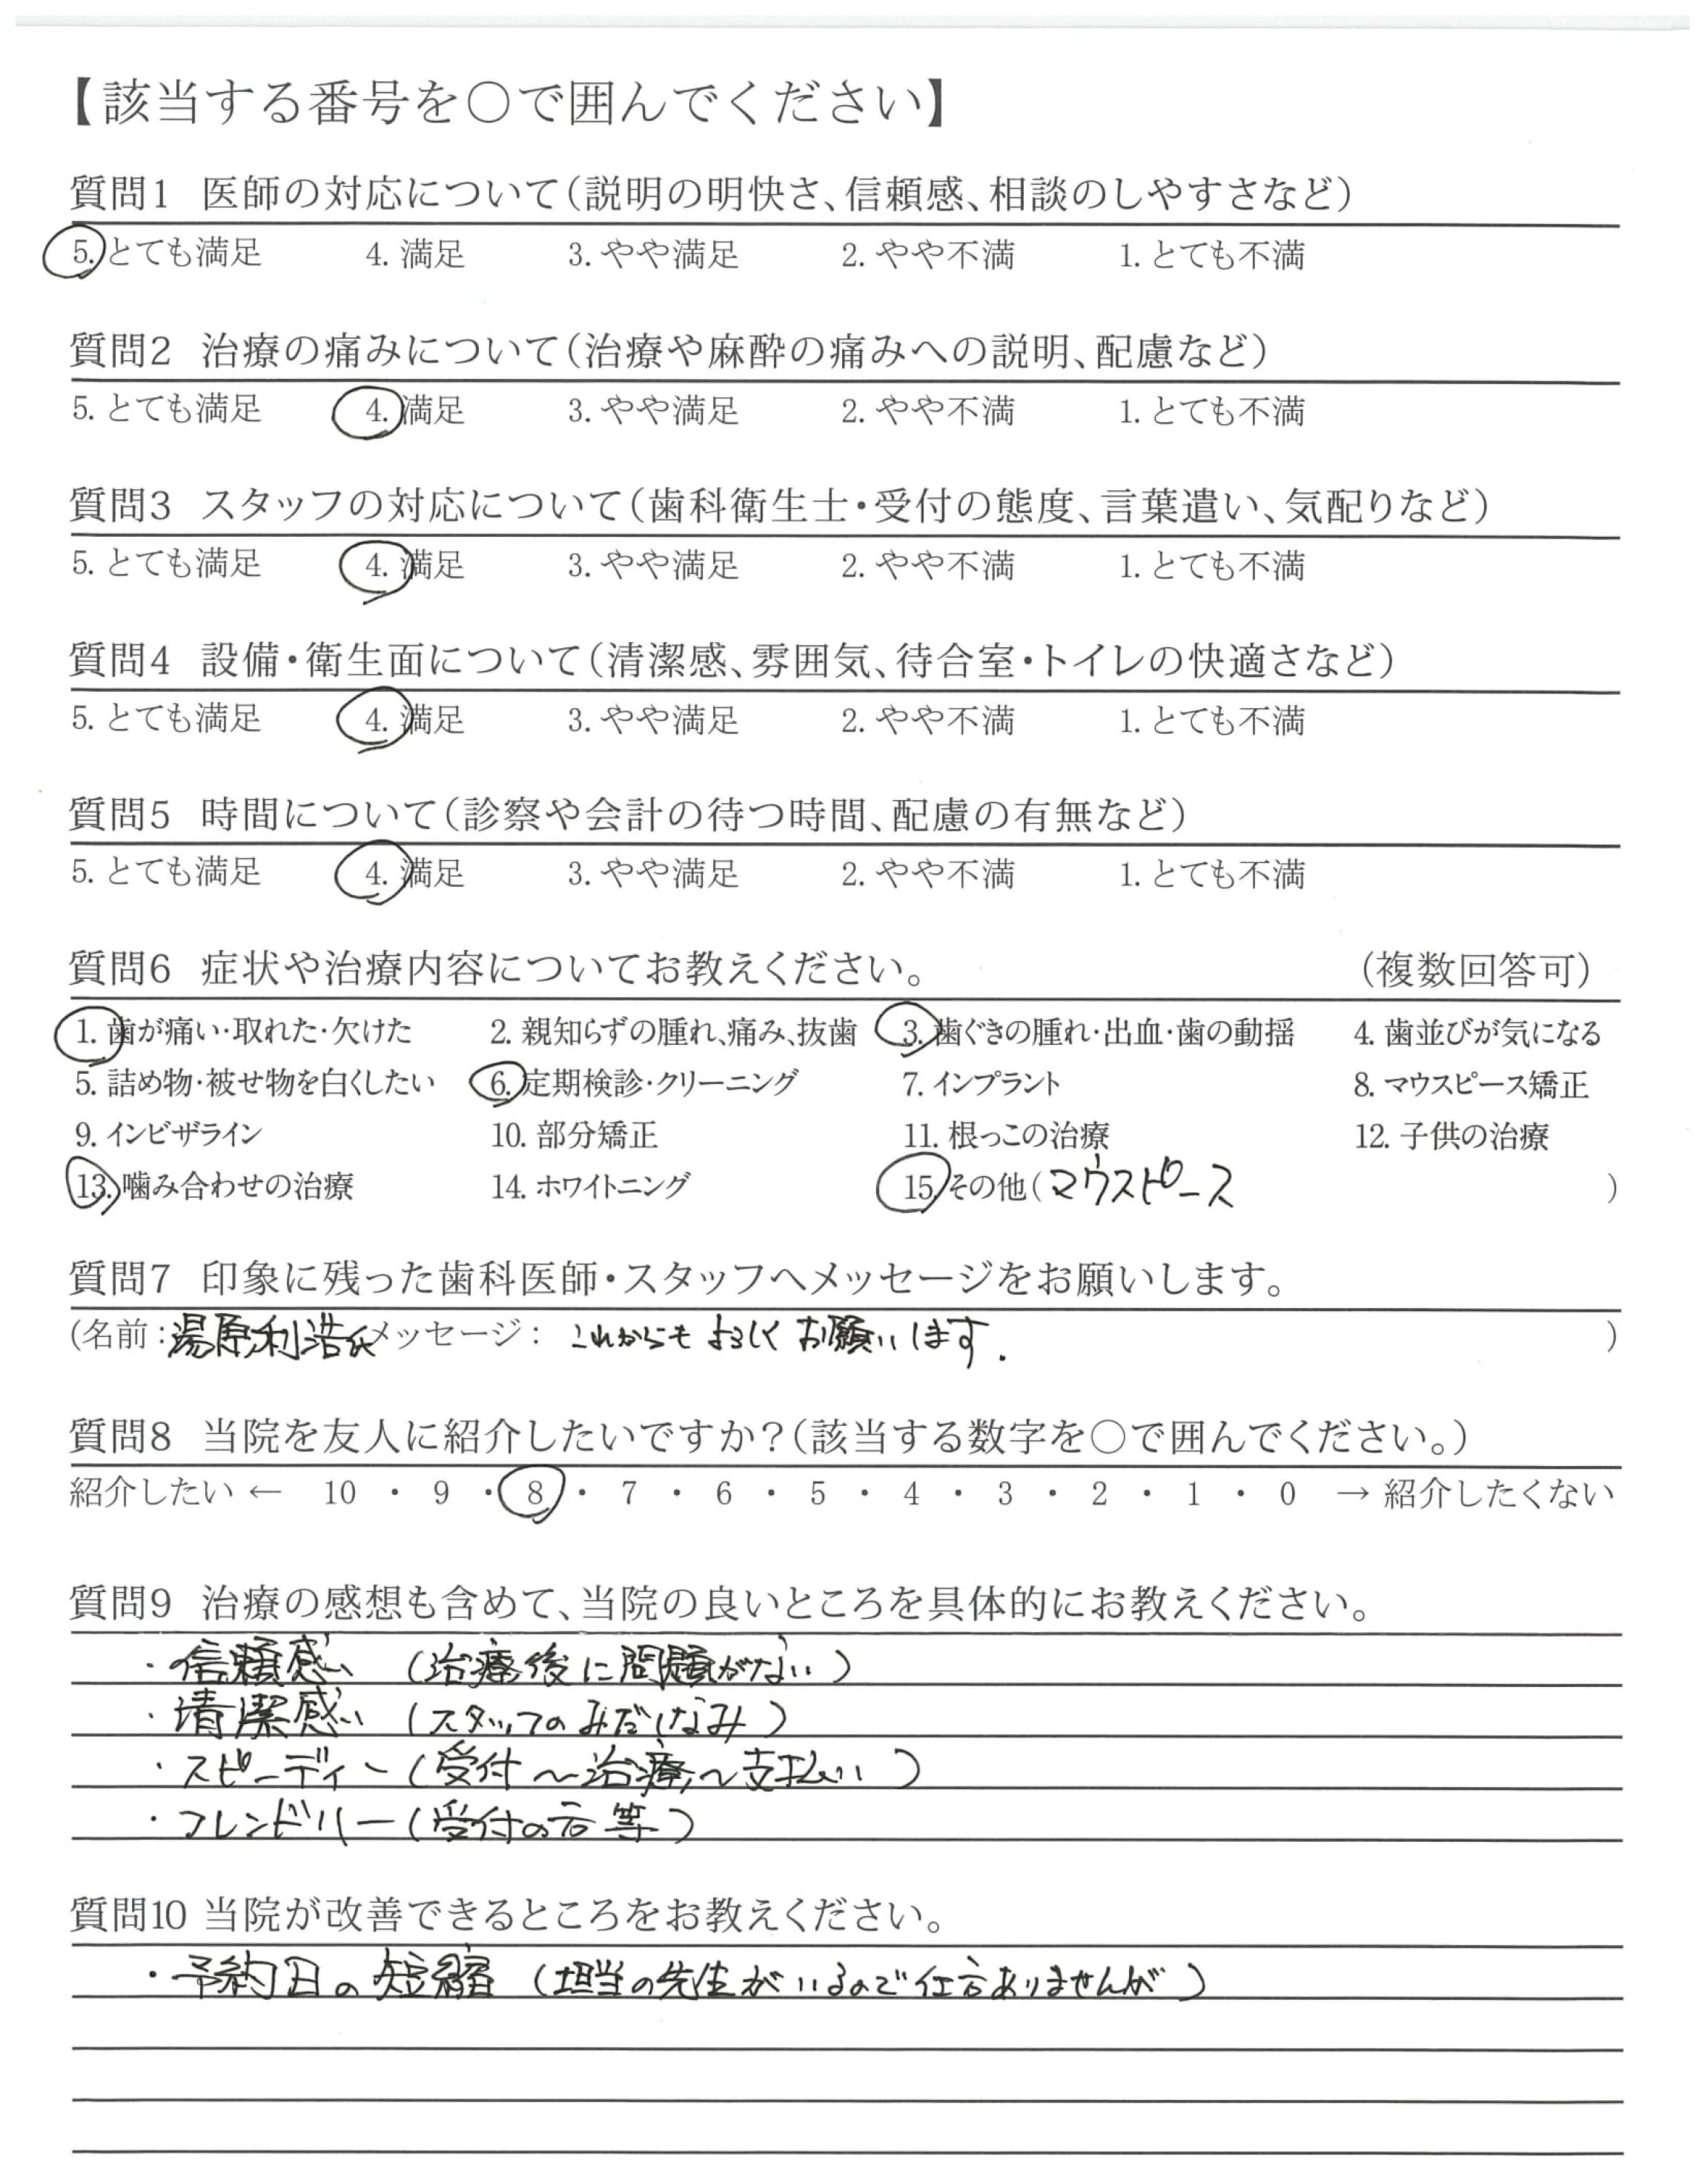 【該当する番号を○で囲んでください】
質問1 医師の対応について(説明の明快さ、信頼感、相談のしやすさなど)
5. とても満足 4. 満足 3. やや満足 2. やや不満 1. とても不満
質問2 治療の痛みについて(治療や麻酔の痛みへの説明、配慮など)
5. とても満足 4. 満足 3. やや満足 2. やや不満 1. とても不満
質問3 スタッフの対応について(歯科衛生士・受付の態度、言葉遣い、気配りなど)
5. とても満足 4. 満足 3. やや満足 2. やや不満 1. とても不満
質問4 設備・衛生面について(清潔感、雰囲気、待合室・トイレの快適さなど)
5. とても満足 4. 満足 3. やや満足 2. やや不満 1. とても不満
質問5 時間について(診察や会計の待つ時間、配慮の有無など)
5. とても満足 4. 満足 3. やや満足 2. やや不満 1. とても不満
質問6 症状や治療内容についてお教えください。 (複数回答可)
1. 歯が痛い・取れた・欠けた 2. 親知らずの腫れ、痛み、抜歯 3. 歯ぐきの腫れ・出血・歯の動揺 4. 歯並びが気になる
5. 詰め物・被せ物を白くしたい 6. 定期検診・クリーニング 7. インプラント 8. マウスピース矯正
9. インビザライン 10. 部分矯正 11. 根っこの治療 12. 子供の治療
13. 噛み合わせの治療 14. ホワイトニング 15. その他(マウスピース )
質問7 印象に残った歯科医師・スタッフへメッセージをお願いします。
(名前:湯原利浩氏 メッセージ: これからもよろしくお願いします. )
質問8 当院を友人に紹介したいですか?(該当する数字を○で囲んでください。)
紹介したい ← 10 ・ 9 ・ 8 ・ 7 ・ 6 ・ 5 ・ 4 ・ 3 ・ 2 ・ 1 ・ 0 → 紹介したくない
質問9 治療の感想も含めて、当院の良いところを具体的にお教えください。
・信頼感 (治療後に問題がない)
・清潔感 (スタッフのみだしなみ)
・スピーディー(受付〜治療〜支払い)
・フレンドリー(受付の方等)
質問10 当院が改善できるところをお教えください。
・予約日の短縮 (担当の先生がいるので仕方ありませんが)